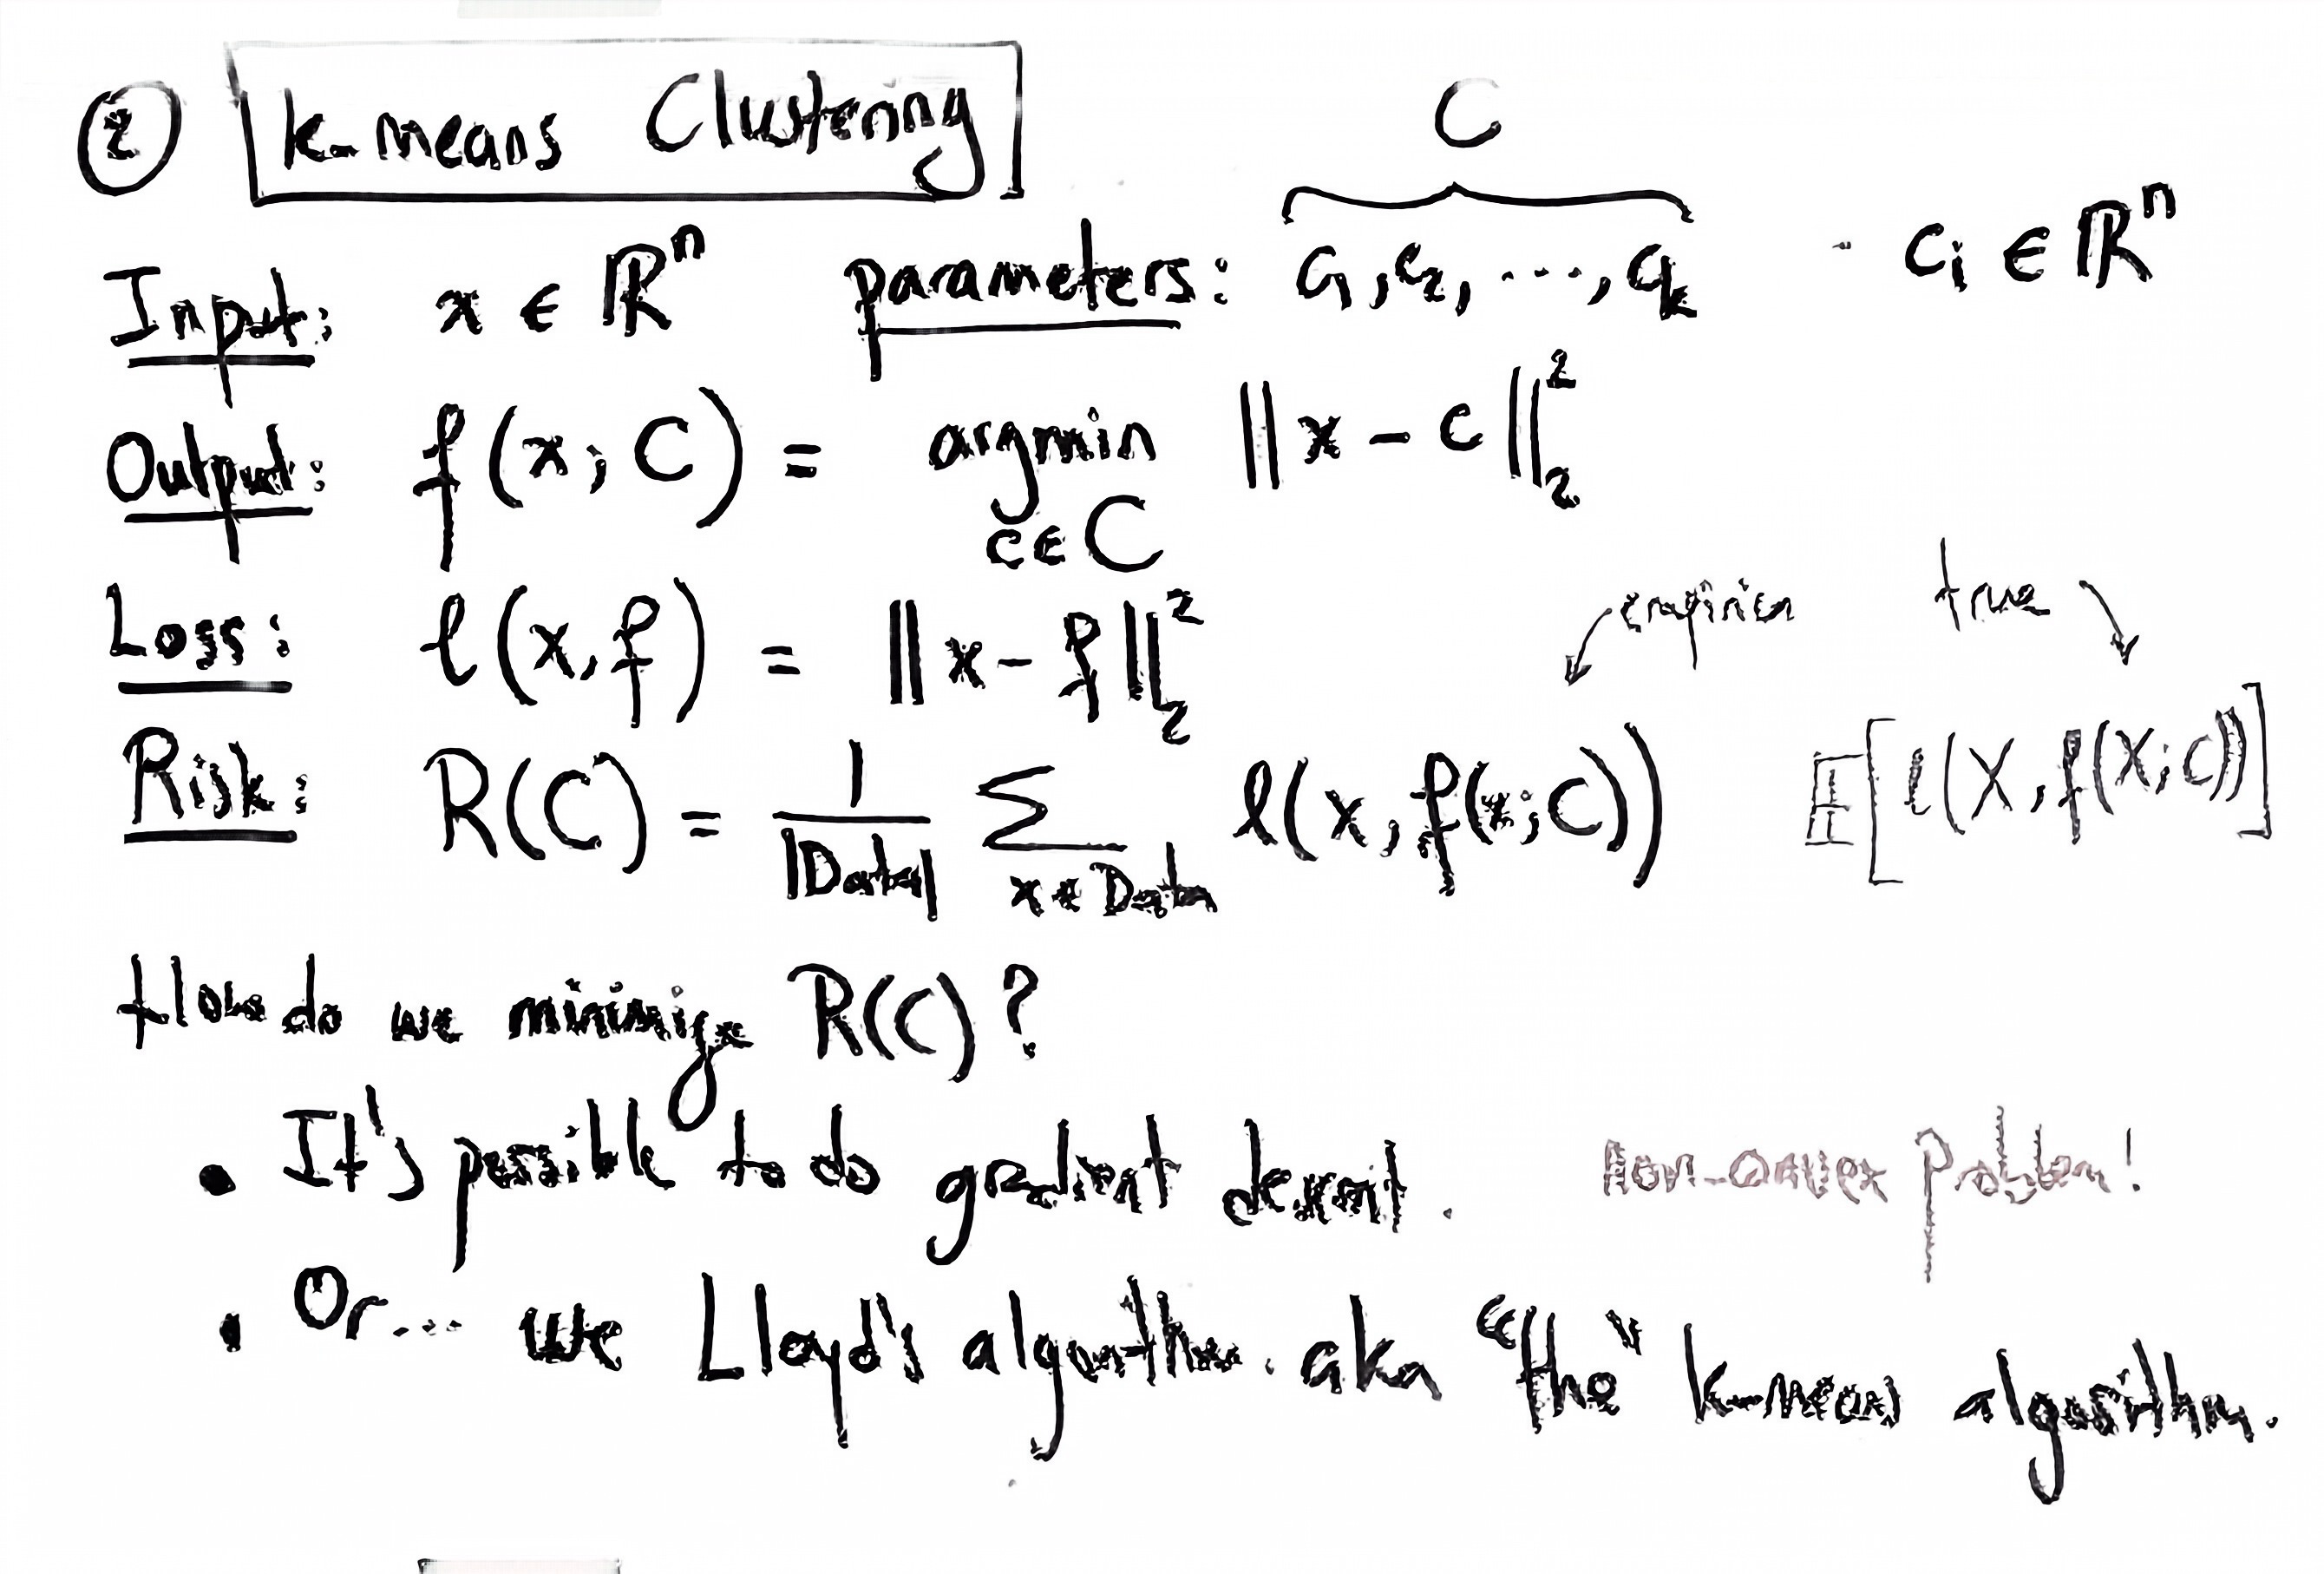 ② k-means Clustering
C
Input: x ∈ ℝⁿ parameters: c₁, c₂, ..., cₖ cᵢ ∈ ℝⁿ
Output: f(x; C) = argmin ‖x - c‖₂²
c∈C
empirical true
Loss: ℓ(x, f) = ‖x - f‖₂²
Risk: R(C) = 1/|Data| Σ_{x∈Data} ℓ(x, f(x;C)) 𝔼[ℓ(X, f(X;C))]
How do we minimize R(C)?
• It's possible to do gradient descent. Non-convex problem!
• Or... use Lloyd's algorithm. aka "the" k-means algorithm.